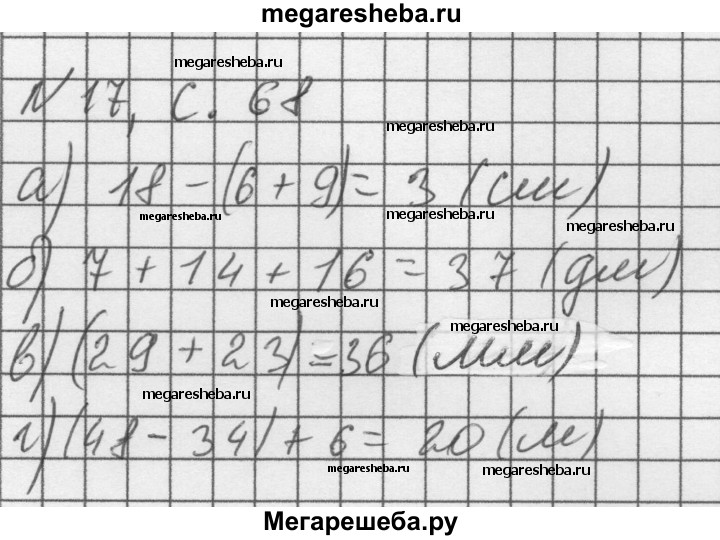 megaresheba.ru
megaresheba.ru
N 17, с. 68
megaresheba.ru
а) 18 - (6 + 9) = 3 (см)
megaresheba.ru
megaresheba.ru
megaresheba.ru
б) 7 + 14 + 16 = 37 (дм)
megaresheba.ru
megaresheba.ru
в) (29 + 23) = 36 (мм)
megaresheba.ru
г) (48 - 34) + 6 = 20 (м)
megaresheba.ru
megaresheba.ru
Мегарешеба.ру